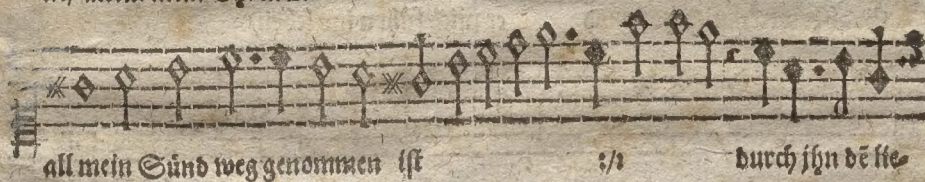 all mein Sünd weg genommen ist :/: durch jhn dē lie-